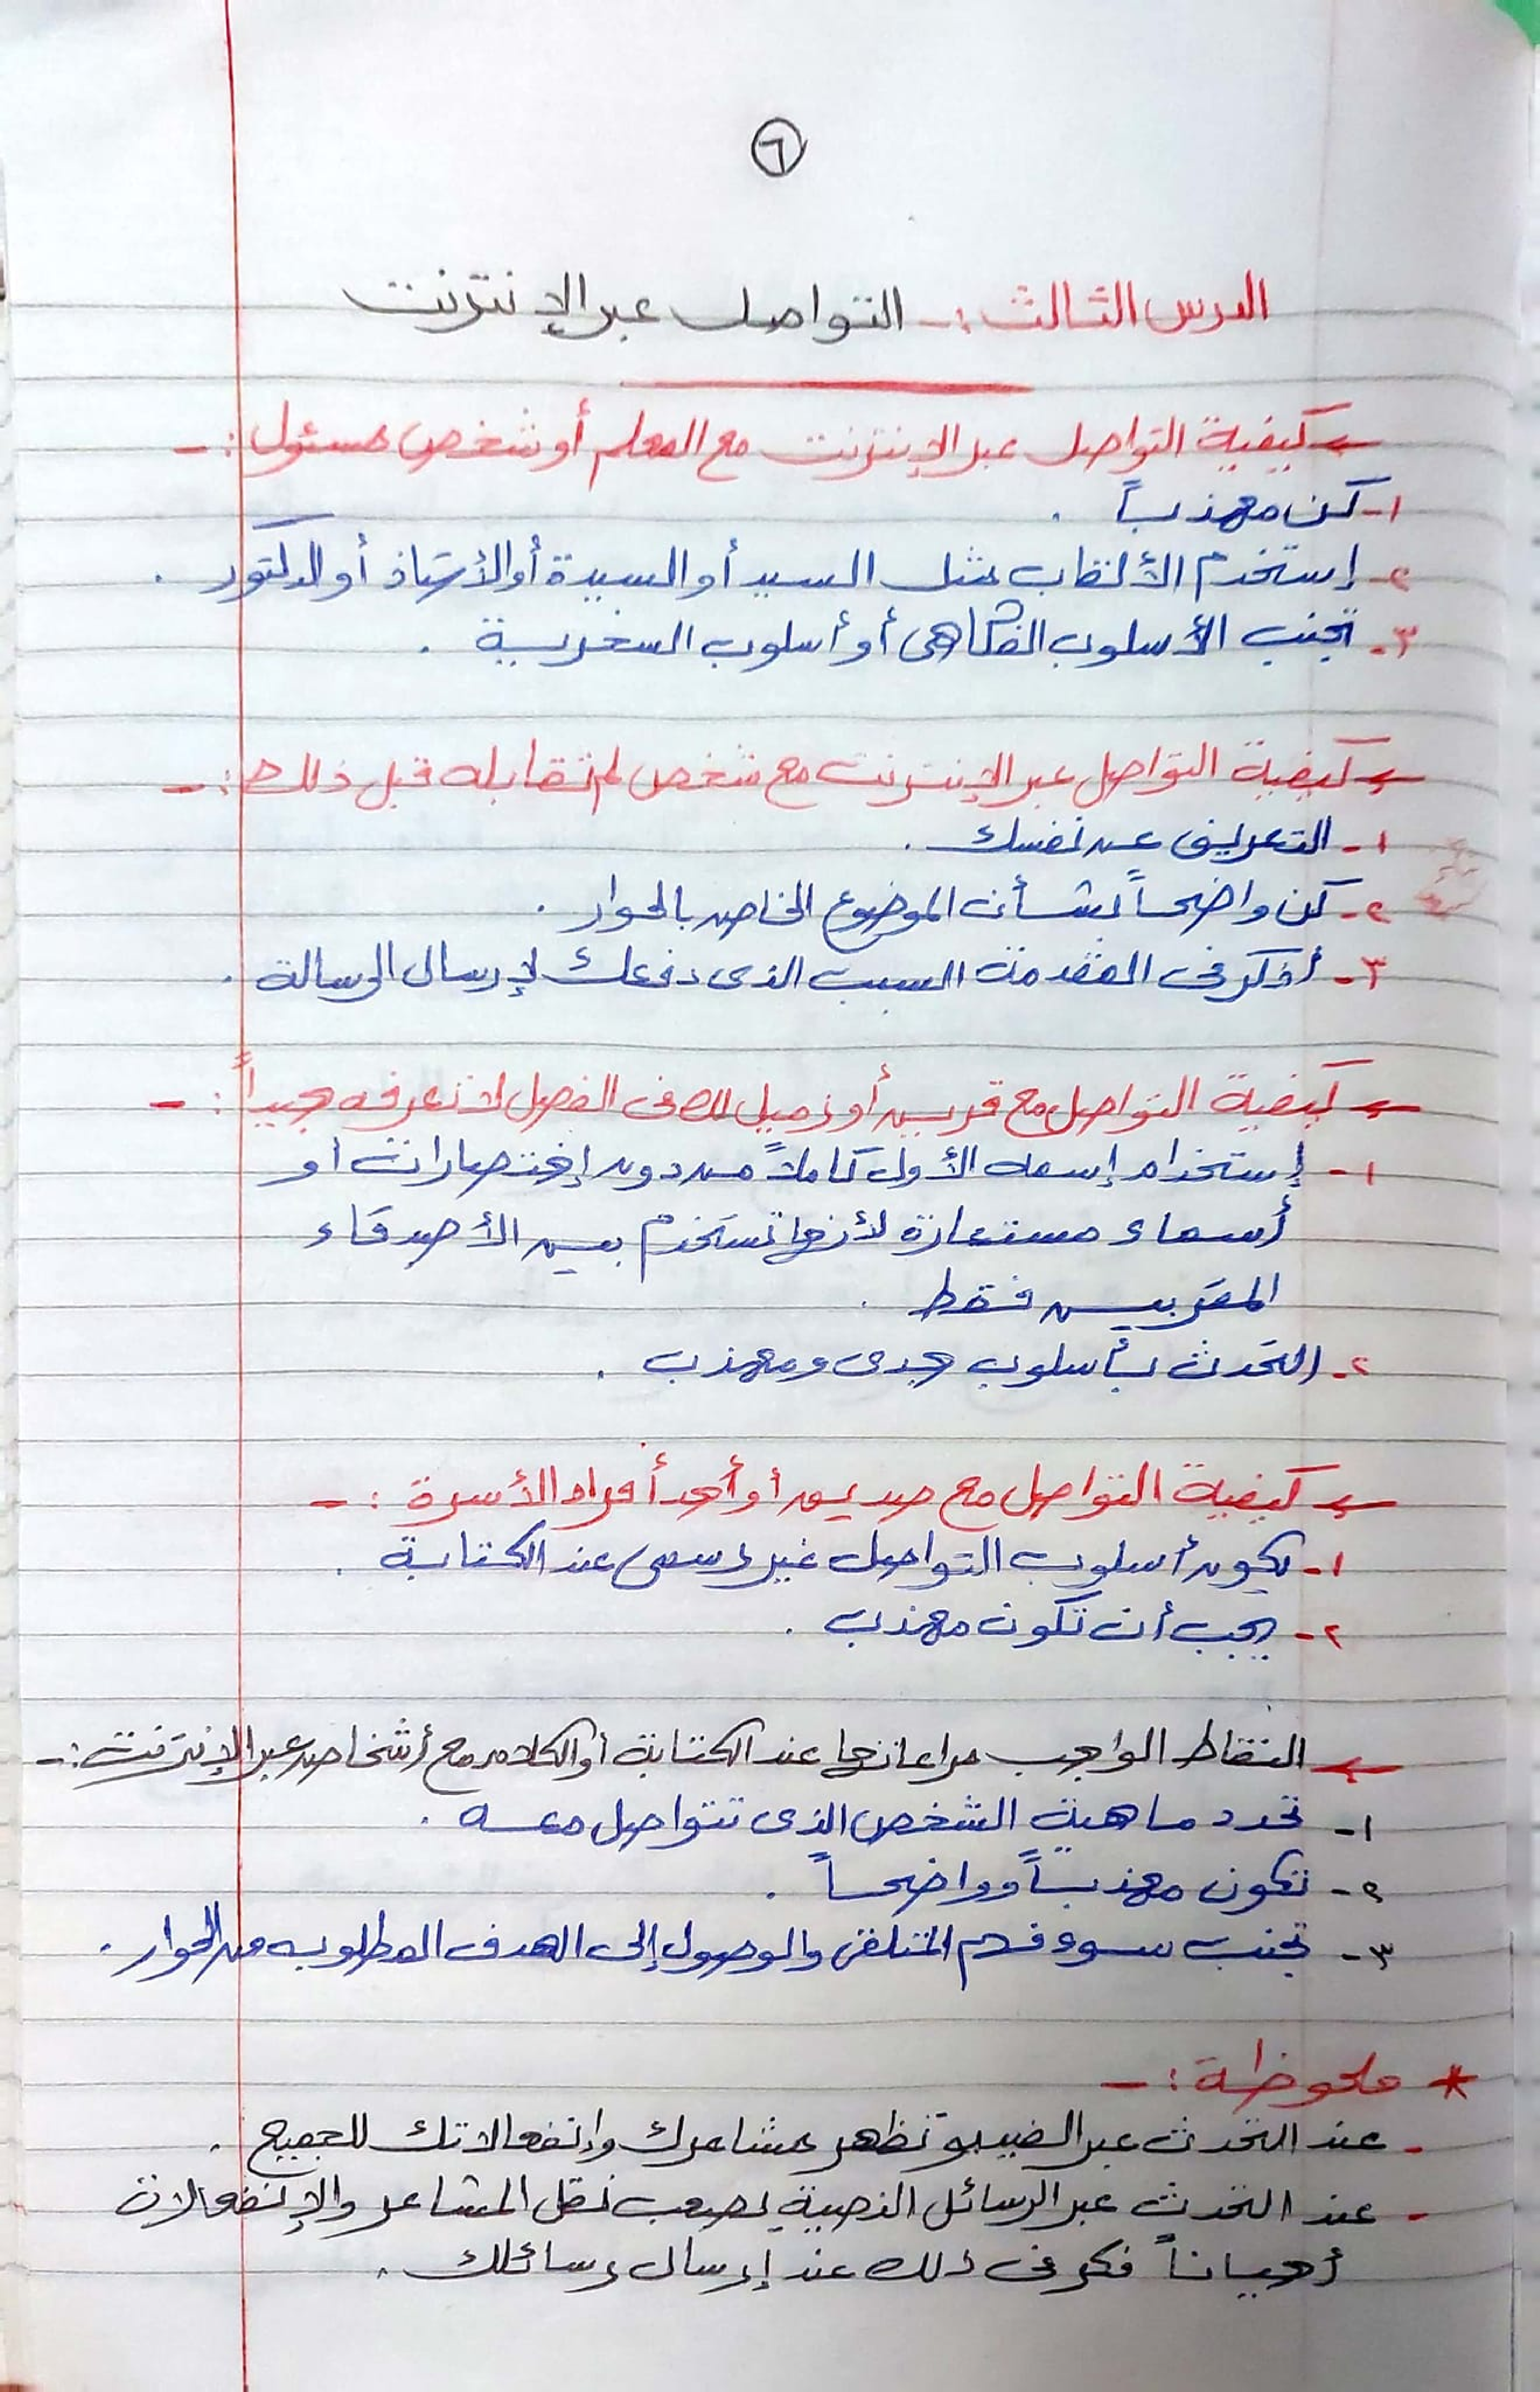 ٦
الدرس الثالث :- التواصل عبر الإنترنت
← كيفية التواصل عبر الإنترنت مع المعلم أو شخص مسئول :-
١- كن مهذباً .
٢- إستخدم الألقاب مثل السيد أو السيدة أو الأستاذ أو الدكتور .
٣- تجنب الأسلوب الفكاهى أو أسلوب السخرية .
← كيفية التواصل عبر الإنترنت مع شخص لم تقابله قبل ذلك :-
١- التعريف عن نفسك .
٢- كن واضحاً بشأن الموضوع الخاص بالحوار .
٣- أذكر فى المقدمة السبب الذى دفعك لإرسال الرسالة .
← كيفية التواصل مع قريب أو زميل لك فى الفصل لا تعرفه جيداً :-
١- إستخدام إسمه الأول كاملاً من دون إختصارات أو
أسماء مستعارة لأنها تستخدم بين الأصدقاء
المقربين فقط .
٢- التحدث بأسلوب جدى ومهذب .
← كيفية التواصل مع صديق أو أحد أفراد الأسرة :-
١- يكون أسلوب التواصل غير رسمى عند الكتابة .
٢- يجب أن تكون مهذب .
← النقاط الواجب مراعاتها عند الكتابة أو الكلام مع أشخاص عبر الإنترنت :-
١- تحدد ماهية الشخص الذى تتواصل معه .
٢- تكون مهذباً وواضحاً .
٣- تجنب سوء فهم المتلقى والوصول إلى الهدف المطلوب من الحوار .
* ملحوظة :-
- عند التحدث عبر الفيديو تظهر مشاعرك وإنفعالاتك للجميع .
- عند التحدث عبر الرسائل النصية يصعب نقل المشاعر والإنفعالات
أحياناً فكر فى ذلك عند إرسال رسائلك .